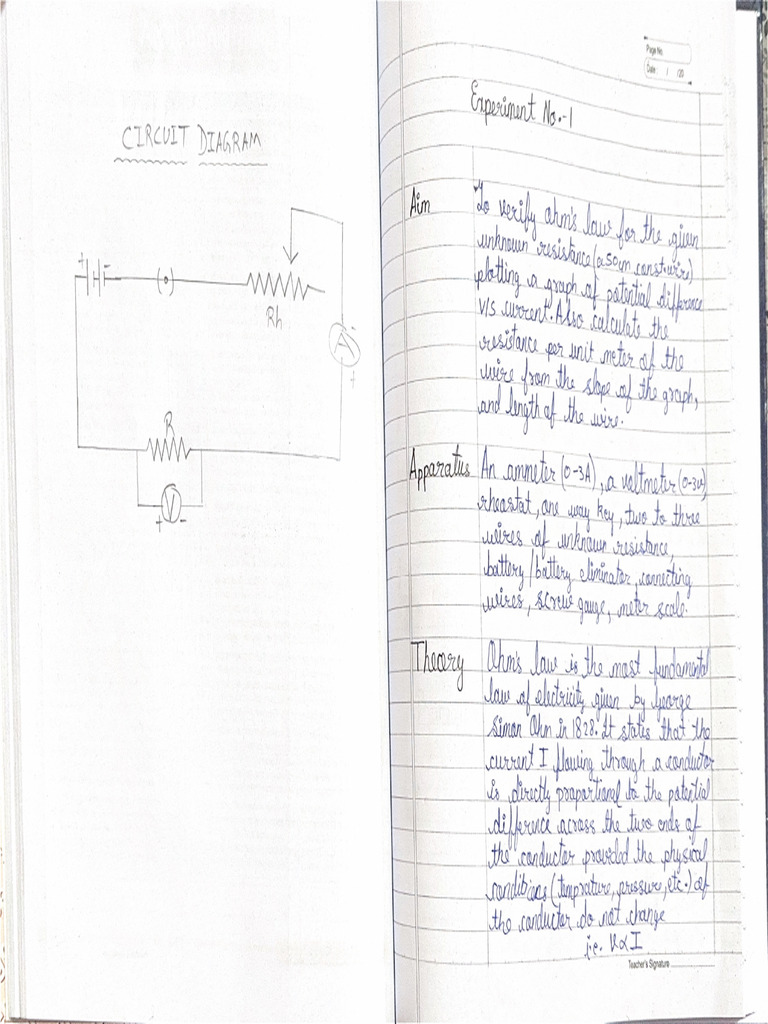 CIRCUIT DIAGRAM
+ -
(•)
Rh
A
-
+
R
V
+ -
Page No.
Date: / /20
Experiment No.-1
Aim
To verify ohm's law for the given
unknown resistance (a 50cm const. wire)
plotting a graph of potential difference
v/s current. Also calculate the
resistance per unit meter of the
wire from the slope of the graph,
and length of the wire.
Apparatus
An ammeter (0-3A), a voltmeter (0-3v),
rheostat, one way key, two to three
wires of unknown resistance,
battery/battery eliminator, connecting
wires, screw gauge, meter scale.
Theory
Ohm's law is the most fundamental
law of electricity given by George
Simon Ohm in 1828. It states that the
current I flowing through a conductor
is directly proportional to the potential
difference across the two ends of
the conductor provided the physical
conditions (temprature, pressure, etc.) of
the conductor do not change
i.e. V∝I
Teacher's Signature